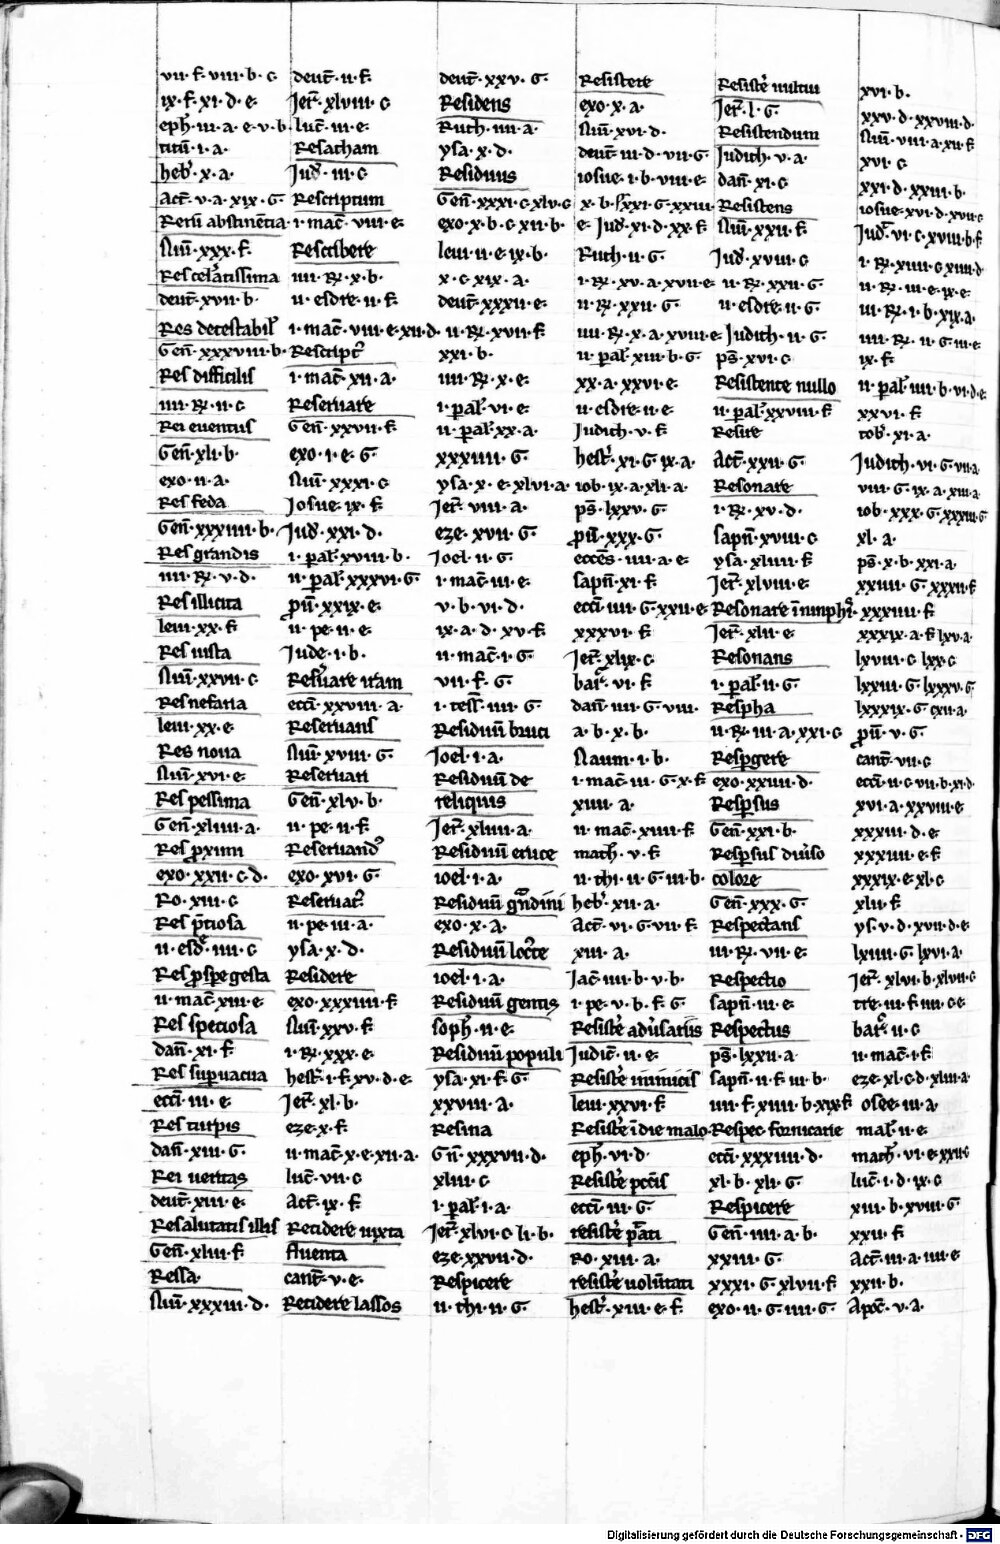 vii· f· viii· b· c
ix· f· xi· d· e·
eph̄· iii· a· e· v· b·
titū· i· a·
heb̄· x· a·
Act̄· v· a· xix· G
Rerū abstinētia
Nūı̄· xxx· f·
Res cel̄atissima
deut̄· xvii· b·
Res detestabil̄
Gen̄· xxxviii· b·
Res difficilis
iiii· R̄· ii· c
Rei eventus
Gen̄· xli· b·
exo· ii· a·
Res feda
Gen̄· xxxiiii· b·
Res grandis
iiii· R̄· v· d·
Res illicita
leui· xx· f
Res iusta
Nūı̄· xxvii· c
Res nefaria
leui· xx· e·
Res noua
Nūı̄· xvi· e·
Res pessima
Gen̄· xliiii· a·
Res proximi
exo· xxii· c· d·
Ro· xiii· c
Res p̄tiosa
ii· esdr̄· iiii· c
Res prospe gesta
ii· mac̄· xiii· e
Res speciosa
dan̄· xi· f
Res supuacua
eccī· iii· e
Res turpis
dan̄· xiii· G·
Rei ueritas
deut̄· xiii· e·
Res alutatis illis
Gen̄· xliii· f
Ressa·
Nūı̄· xxxiii· d·
deut̄· ii· f
Jer̄· xlviii· c
luc̄· iii· e·
Resatham
Jud̄· iii· c
Rescriptum
i· mac̄· viii· e·
Rescribere
iiii· R̄· x· b·
ii· esdre· ii· f
i· mac̄· viii· e· xii· d·
Rescript̄
i· mac̄· xii· a·
Reseruare
Gen̄· xxvii· f·
exo· i· e· G·
Nūı̄· xxxi· c
Josue· ix· f·
Jud̄· xxi· d·
i· pal̄· xviii· b·
ii· pal̄· xxxvi· G
pū̄· xxix· e·
ii· pe· ii· e·
Jude· i· b·
Res̄uare iram
eccī· xxviii· a·
Reseruans
Nūı̄· xviii· G·
Reseruari
Gen̄· xlv· b·
ii· pe· ii· f
Reseruand̄
exo· xvi· G
Reseruat̄
ii· pe· iii· a·
ysa· x· d·
Residere
exo· xxxiiii· f
Nūı̄· xxv· f·
i· R̄· xxx· e·
hest̄· i· f· xv· d· e·
Jer̄· xl· b·
eze· x· f·
ii· mac̄· x· e· xii· a·
luc̄· vii· c
Act̄· ix· f·
Recidere iuxta
fluenta
cant̄· v· e·
Recidere lassos
deut̄· xxv· G·
Residens
Ruth· iiii· a·
ysa· x· d·
Residuus
Gen̄· xxxi· c· xlv· c
exo· x· b· c· xii· b·
leui· ii· e· ix· b·
x· c· xix· a·
deut̄· xxxii· e·
ii· R̄· xvii· f
xxi· b·
iiii· R̄· x· e·
i· pal̄· vi· e·
ii· pal̄· xx· a·
xxxiiii· G·
ysa· x· e· xlvi· a·
Jer̄· viii· a·
eze· xvii· G·
Joel· ii· G·
i· mac̄· iii· e·
v· b· vi· d·
ix· a· d· xv· f
ii· mac̄· i· G
vii· f· G·
i· tess̄· iiii· G
Residuū bruci
Joel· i· a·
Residuū de
reliquis
Jer̄· xliiii· a·
Residuū eruce
ioel· i· a·
Residuū gndini
exo· x· a·
Residuū locr̄te
ioel· i· a·
Residuū gentis
soph̄· ii· e·
Residuū populi
ysa· xi· f· G·
xxviii· a·
Resina
Gn̄· xxxvii· d·
xliii· c
i· pal̄· i· a·
Jer̄· xlvi· c· li· b·
eze· xxvii· d·
Respicere
ii· thi· ii· G·
Resistere
exo· x· a·
Nūı̄· xvi· d·
deut̄· iii· d· vii· G
iosue· i· b· viii· e·
e· Jud̄· xi· d· xx· f
Ruth· ii· G·
i· R̄· xv· a· xvii· e·
ii· R̄· xxii· G·
iiii· R̄· x· a· xviii· e·
ii· pal̄· xiii· b· G
xx· a· xxvi· e·
ii· esdre· ii· e·
Judith· v· f·
hest̄· xi· G· ix· a·
iob· ix· a· xli· a·
ps̄· lxxv· G·
pū̄· xxx· G·
ecces̄· iiii· a· e·
sapn̄· xi· f
eccī· iiii· G· xxii· e·
xxxvi· f
Jer̄· xlix· c·
bar̄· vi· f
dan̄· iiii· G· viii·
a· b· x· b·
Naum· i· b·
i· mac̄· iii· G· x· f
xiiii· a·
ii· mac̄· xiiii· f
math̄· v· f
ii· thi· ii· G· iii· b·
heb̄· xii· a·
Act̄· vi· G· vii· f
xiii· a·
Jac̄· iiii· b· v· b·
i· pe· v· b· f· G
Resist̄e adūsariis
Judic̄· ii· e·
Resist̄e inimicis
leui· xxvi· f
Resist̄e īdie malo
eph̄· vi· d·
Resist̄e pcc̄is
eccī· iii· G·
resist̄e p̄ati
Ro· xiii· a·
resist̄e volūtati
hest̄· xiii· e· f·
Resist̄e uultui
Jer̄· l· G·
Resistendum
Judith· v· a·
dan̄· xi· c
Resistens
Nūı̄· xxii· f
Jud̄· xviii· c
ii· R̄· xxii· G·
ii· esdre· ii· G·
Judith· ii· G·
ps̄· xvi· c
Resistente nullo
ii· pal̄· xxviii· f
Resite
Act̄· xxii· G·
Resonare
i· R̄· xv· d·
sapn̄· xviii· c
ysa· xliiii· f
Jer̄· xlviii· e·
Resonare
Jer̄· xlii· e
Resonans
i· pal̄· ii· G·
Respha
ii· R̄· iii· a· xxi· c
Respgere
exo· xxiiii· d·
Respsus
Gen̄· xxi· b·
Respsus diūso
colore
Gen̄· xxx· G·
Respectans
iii· R̄· vii· e·
Respectio
sapn̄· iii· e·
Respectus
ps̄· lxxii· a·
sapn̄· ii· f· iii· b·
iiii· f· xiiii· b· xix· f
Respec fornicarie
eccī· xxxiiii· d·
xl· b· xli· G·
Respicere
Gen̄· iiii· a· b·
xxiii· G·
xxxi· G· xlvii· f
exo· ii· G· iiii· G·
xvi· b·
xxv· d· xxviii· d·
Nūı̄· viii· a· xii· f
xvi· c
xxi· d· xxiii· b·
iosue· xvi· d· xvii· c
Jud̄· vi· c· xviii· b· f
i· R̄· xiiii· c· xiiii· d·
ii· R̄· iii· e· ix· e·
iii· R̄· i· b· xix· a·
iiii· R̄· ii· G· iii· e·
ix· f·
ii· pal̄· iiii· b· vi· d· e·
xxvi· f
tob̄· xi· a·
Judith· vi· G· vii· a·
viii· G· ix· a· xiii· a·
iob· xxx· G· xxxiii· G
xl· a·
ps̄· x· b· xxi· a·
xxiiii· G· xxxii· f
xxxiiii· f
xxxix· a· f· lxv· a·
lxviii· c· lxx· c
lxxiii· G· lxxxv· G
lxxxix· G· cxii· a·
pū̄· v· G·
cant̄· vii· c
eccī· ii· c· vii· b· xi· d·
xvi· a· xxviii· e
xxxiii· d· e
xxxiiii· e· f
xxxix· e· xl· c
xlii· f
ys· v· d· xvii· d· e
lxiiii· G· lxvi· a·
Jer̄· xlvi· b· xlvii· c
tre· iii· f· iiii· c· e
bar̄· ii· c
ii· mac̄· i· f
eze· xl· c· d· xliii· a
osee· iii· a·
mal̄· ii· e·
math̄· vi· e· xxii· c
luc̄· i· d· ix· c
xiii· b· xviii· G
xxii· f
Act̄· iii· a· iiii· e
xxii· b·
Apoc̄· v· a·
Digitalisierung gefördert durch die Deutsche Forschungsgemeinschaft - DFG